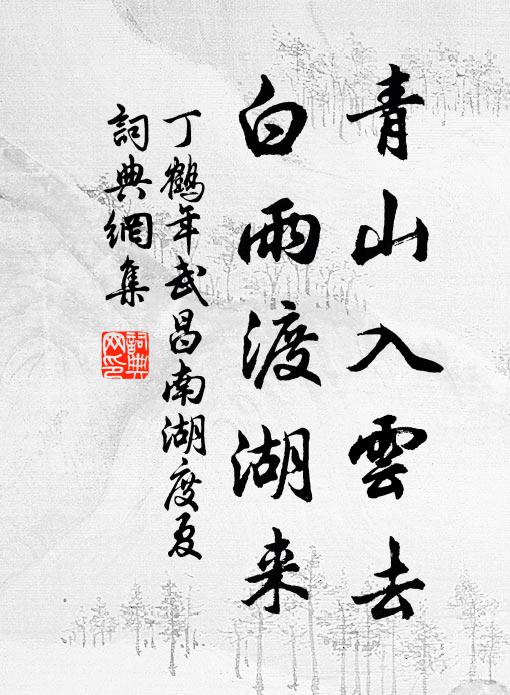 青山入雲去
白雨渡湖来
丁鶴年武昌南湖度夏
詞典網集
詞典
网印